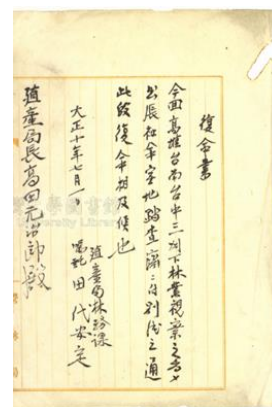 復命書
今囬高雄台南台中三州下林業視察之為メ
出張被命宅地踏査濟ニ付別冊之通
此段復命相及候也
大正十年七月一日
殖產局林務課
囑託 田代安定
殖產局長高田元治郎殿